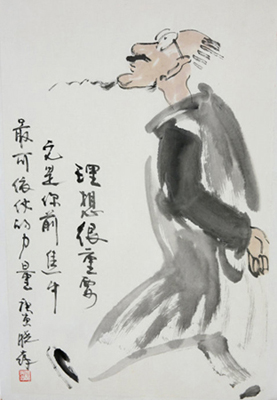 理想很重要
它是你前进中
最可依仗的力量